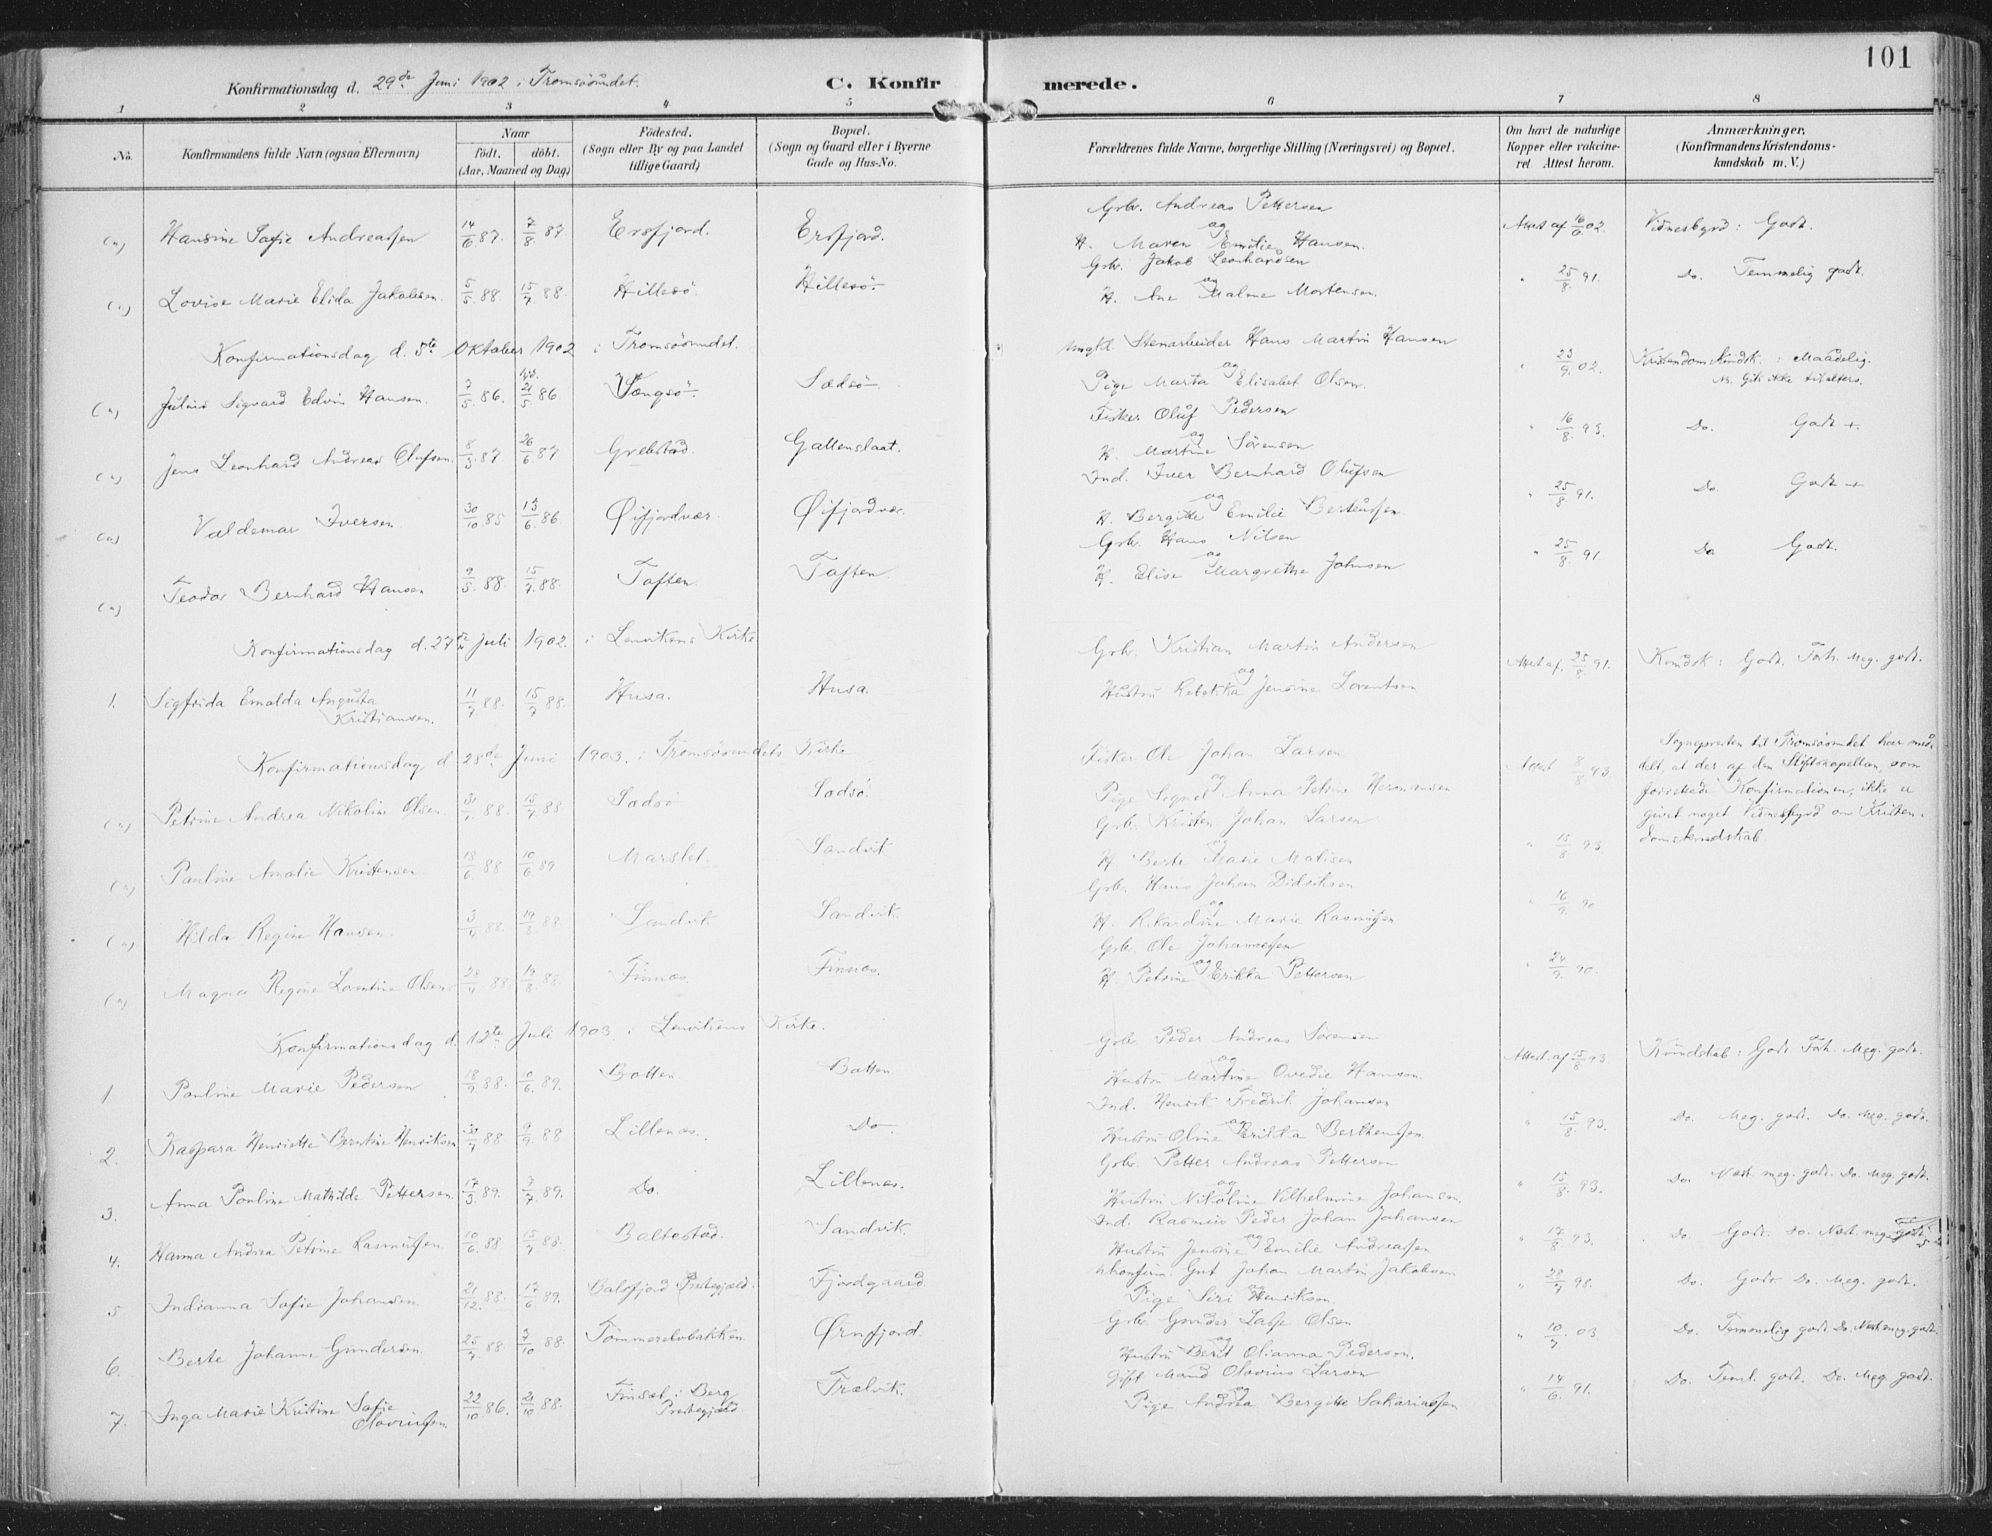 101
Konfirmationsdag d. 29de Juni 1902 i Tromsösundet.
C. Konfirmerede.
1 2 3 4 5 6 7 8
No.
Konfirmandens fulde Navn (ogsaa Efternavn)
Naar
födt. döbt.
(Aar, Maaned og Dag)
Födested.
(Sogn eller By og paa Landet
tillige Gaard)
Bopæl.
(Sogn og Gaard eller i Byerne
Gade og Hus-No.
Forældrenes fulde Navne, borgerlige Stilling (Næringsvei) og Bopæl.
Om havt de naturlige
Kopper eller vakcine-
ret. Attest herom.
Anmærkninger.
(Konfirmandens Kristendoms-
kundskab m. V.)
(") Hansine Sofie Andreassen 14/6 87. 7/8 87 Ersfjord. Ersfjord. Grbr. Andreas Pettersen og H. Maren Emilie Hansen. Attest af 16/6 02. Vidnesbyrd: Godt.
(") Lovise Marie Elida Jakobsen. 5/5 88. 15/7 88. Hillesö. Hillesö. Grbr. Jakob Leonhardsen og H. Ane Malene Mortensen. " 25/8 91. Do. Temmelig godt.
Konfirmationsdag d. 5te Oktober 1902 i Tromsösundet.
(") Julius Sigvard Edvin Hansen. 7/5 86. 21/5 86. Vængsö. Sædsö. Ungkl. Stenarbeider Hans Martin Hansen og Pige Marta Elisabet Olsen. " 23/9 02. Kristendomskundsk.: Maadelig.
(") Jens Leonhard Andreas Olufsen. 8/3 87. 26/6 87 Grebstad. Gattenslaat. Fisker Oluf Pedersen og H. Martine Sörensen " 16/8 93. Do. Godt +.
(") Valdemar Iversen. 30/10 85 13/6 86. Øifjordvær. Øifjordvær. Ind. Iver Bernhard Olufsen og H. Bergitte Emilie Berteussen. " 25/8 91. Do. Godt +
(") Teodor Bernhard Hansen 9/5 88. 15/7 88. Taften. Taften. Grbr. Hans Nilsen og H. Elise Margrethe Johnsen " 25/8 91. Do Godt.
Konfirmationsdag d. 27de Juli 1902. i Lenvikens Kirke
1. Sigfrida Emalda Augusta Kristiansen. 11/7 88. 15/7 88. Husa. Husa. Grbr. Kristian Martin Andersen og Hustru Rebekka Jensine Lorentsen Attest af. 25/8 91. Kundsk: Godt. Forh. Meg. godt.
Konfirmationsdag d 28de Juni 1903. i Tromsösundets Kirke
(") Petrine Andrea Nikoline Olsen. 88. 15/7 88 Sadsö Sadsö. Fisker Ole Johan Larsen og Pige Signe Anna Petrine Heronimsen Attest 8/8 93.
Sognepresten til Tromsösundet har med-
delt, at der af den Stiftskapellan, som
forrettede Konfirmationen, ikke er
givet noget Vidnesbyrd om Kristen-
domskundskab.
(") Pauline Amalie Kristensen. 18/6 88. 10/6 89 Marslet. Sandvik Grbr. Kristen Johan Larsen og H. Berte Marie Matisen " 15/8 93
(") Hilda Regine Hansen. 3/4 88. 19/8 88. Sandvik Sandvik. Grbr. Hans Johan Didriksen og H. Rikardine Marie Rasmussen " 16/9 90
(") Magna Regine Lorentine Olsen 28/4 88. 19/8 88. Finnes. Finnes. Grbr. Ole Johannessen og H. Petrine Erikka Pettersen " 24/9 90.
Konfirmationsdag d. 12te Juli 1903. i Lenvikens Kirke.
1 Pauline Marie Pedersen 18/9 88. 10/6 89. Botten Botten. Grbr. Peder Andreas Sörensen og Hustru Martine Ovedie Hansen. Attest af 15/8 93. Kundskab: Godt Forh. Meg. godt.
2. Kaspara Henriette Berntine Henriksen 88 9/9 88 Lillenes. Do. Ind. Henrik Fredrik Johansen og Hustru Oline Erikka Berthenssen. " 15/8 93. Do. Meg. godt. Do. Meg. godt.
3. Anna Pauline Mathilde Pettersen. 17/3 89. 7/7 89. Do. Lillenes. Grbr. Petter Andreas Pettersen og Hustru Nikoline Vilhelmine Johansen. " 15/8 93. Do. Næst. meg. godt. Do. Meg. godt.
4. Hanna Andrea Petrine Rasmussen. 10/6 88 15/7 88. Baltestad. Sandvik. Ind. Rasmus Peder Johan Johansen og Hustru Jensine Emilie Andreassen " 17/8 93. Do. Godt. Do. Næst. meg. godt.
5. Indianna Sofie Johansen. 21/12 88. 17/6 89. Balsfjord Prestegjæld. Fjordgaard. Ukonfirm. Gut Johan Martin Jakobsen og Pige Siri Henriksen. " 28/7 98. Do. Godt Do. Meg. godt.
6. Berte Johanne Gundersen. 25/7 88. 7/10 88. Tömmerelvbakken. Ørnfjord. Grbr. Gunder Lasse Olsen og Hustru Berit Olianna Pedersen. " 10/7 03 Do. Temmelig godt. Do. Næst meg. godt.
7. Inga Marie Kristine Sofie Olavussen. 22/10 86. 21/10 88. Finsæt i Berg Prestegjæld. Trælvik. Gift Mand Olavius Larsen og Pige Andrea Bergitte Sakariassen " 14/6 91. Do. Teml. godt. Do. Meg. godt.